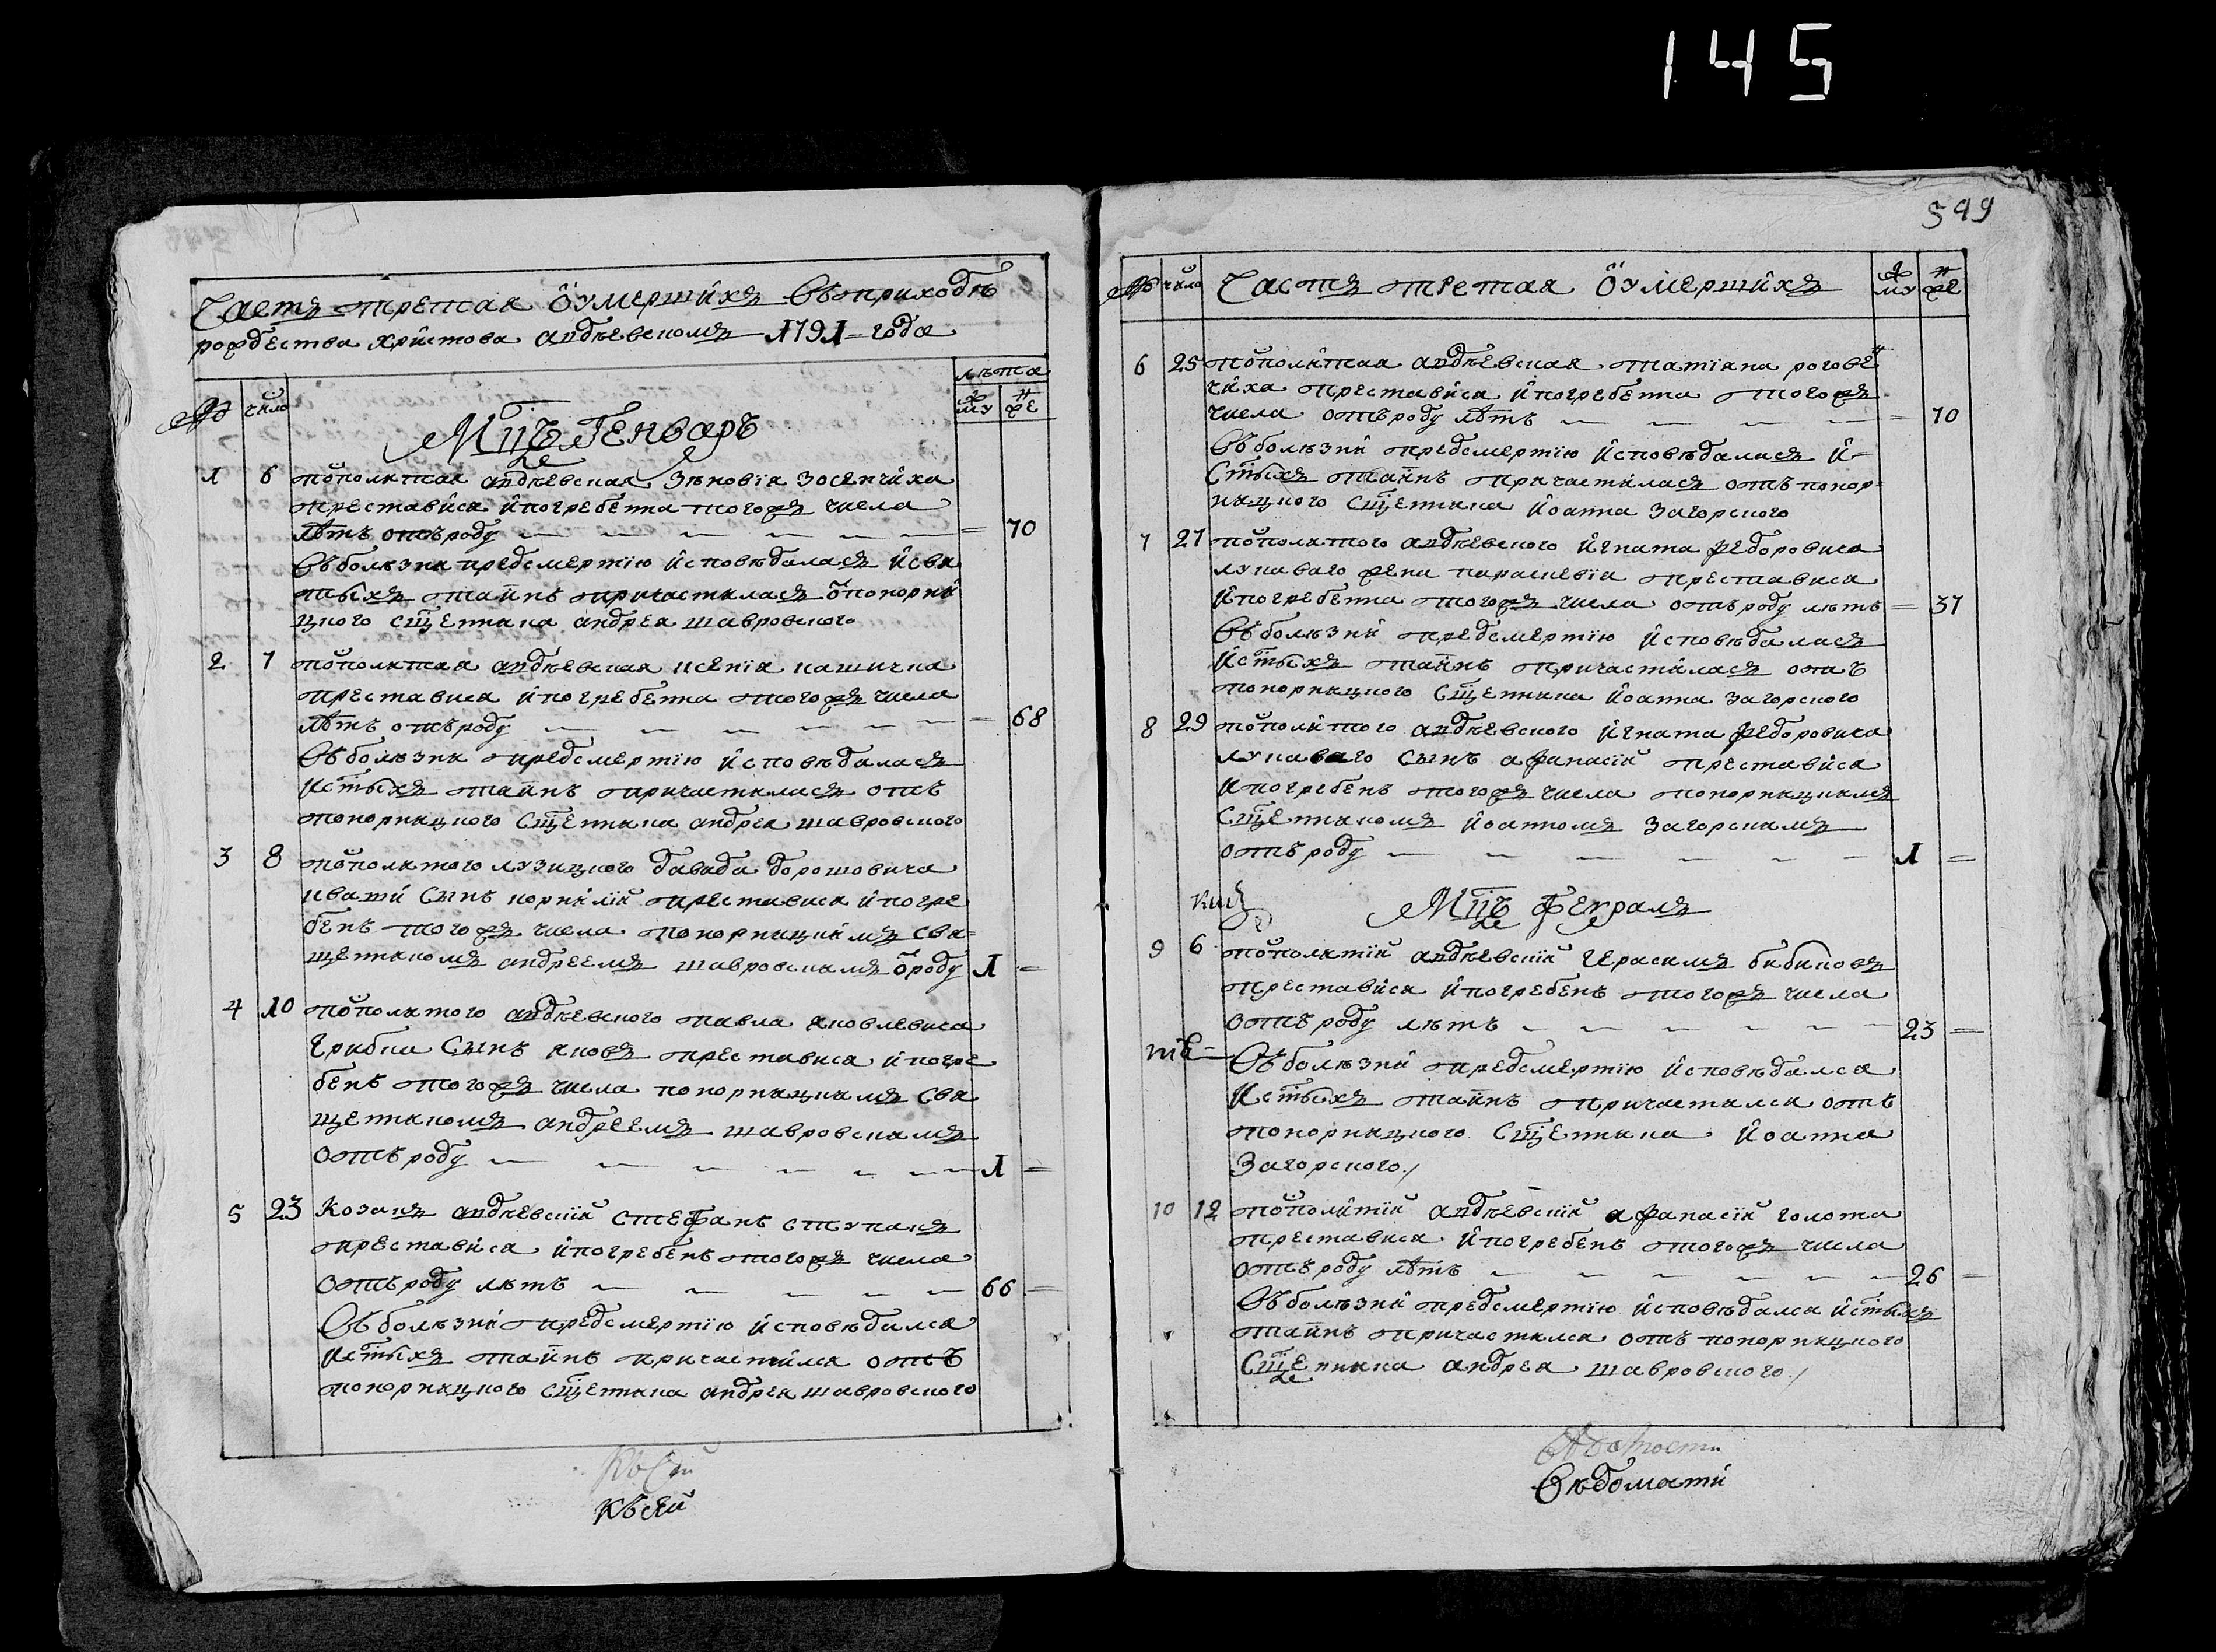 145
Часть третая ѿ умершихъ въ приходѣ
рождества христова андѣевскомъ 1791 = года
лѣта
№ число му же
Мцъ Генваръ
1 6 пополитая андѣевская Зѣновія Зосенчиха
преставися и погребенна тогожъ числа
лѣтъ отъ роду = 70
Въ болезни предсмертію исповѣдалася и свя
тыхъ таинъ причастилася ѿ понорни
цкого сщенника андрея шавровского
2 7 пополитая андѣевская ксенія кашична
преставися и погребенна тогожъ числа
лѣтъ отъ роду = 68
Въ болѣзни предсмертію исповѣдалася
и стыхъ таинъ причастилася отъ
понорницкого сщенника андрея шавровского
3 8 пополитого лузицкого давида дорошовича
кваши сынъ корнилій преставися и погре
бенъ тогожъ числа понорницкимъ свя=
щенникомъ андреемъ шавровскимъ ѿ роду 1 =
4 10 пополитого андѣевского павла яковлевича
Грибка Сынъ яковъ преставися и погре
бенъ тогожъ числа понорницкимъ свя
щенникомъ андреемъ шавровскимъ
отъ роду 1 =
5 23 Козакъ андѣевскій стефанъ ступакъ
преставися и погребенъ тогожъ числа
отъ роду лѣтъ 66 =
Въ болѣзни предсмертію исповѣдался
и стыхъ таинъ причастился отъ
понорницкого сщенника андрея шавровского
Кѣсяй
599
№ число Часть третая ѿ умершихъ му же
6 25 пополитая андѣевская татіана рогове
чиха преставися и погребенна тогожъ
числа отъ роду лѣтъ = 70
Въ болѣзни предсмертію исповѣдалася и=
стыхъ таинъ причастилася отъ понор=
ницкого сщенника иоанна Загорского
7 27 пополитого андѣевского игната федоровича
лукаваго жена параскевія преставися
и погребенна тогожъ числа отъ роду лѣтъ = 37
Въ болѣзни предсмертію исповѣдалася
и стыхъ таинъ причастилася отъ
понорницкого сщенника иоанна Загорского
8 29 пополитого андѣевского игната федоровича
лукаваго сынъ афанасій преставися
и погребенъ тогожъ числа понорницкимъ
сщенникомъ иоанномъ Загорскимъ
отъ роду 1 =
Мцъ Фекраль
9 6 пополитій андѣевскій Герасимъ бибиковъ
преставися и погребенъ тогожъ числа
отъ роду лѣтъ 23 =
Въ болѣзни предсмертію исповѣдался
и стыхъ таинъ причастился отъ
понорницкого сщенника иоанна
Загорского
10 12 пополитій андѣевскій афанасій голота
преставися и погребенъ тогожъ числа
отъ роду лѣтъ 26 =
Въ болѣзни предсмертію исповѣдался и стыхъ
таинъ причастился отъ понорницкого
сщенника андрея шавровского
Вѣдомати